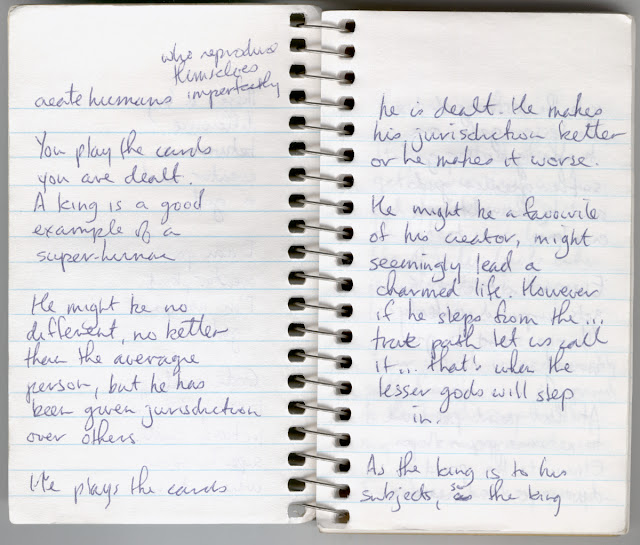 who reproduce
themselves
imperfectly
create humans
You play the cards
you are dealt.
A king is a good
example of a
super-human
He might be no
different, no better
than the average
person, but he has
been given jurisdiction
over others
He plays the cards
he is dealt. He makes
his jurisdiction better
or he makes it worse.
He might be a favourite
of his creator, might
seemingly lead a
charmed life. However
if he steps from the...
true path let us call
it... that's when the
lesser gods will step
in.
As the king is to his
subjects, so the king